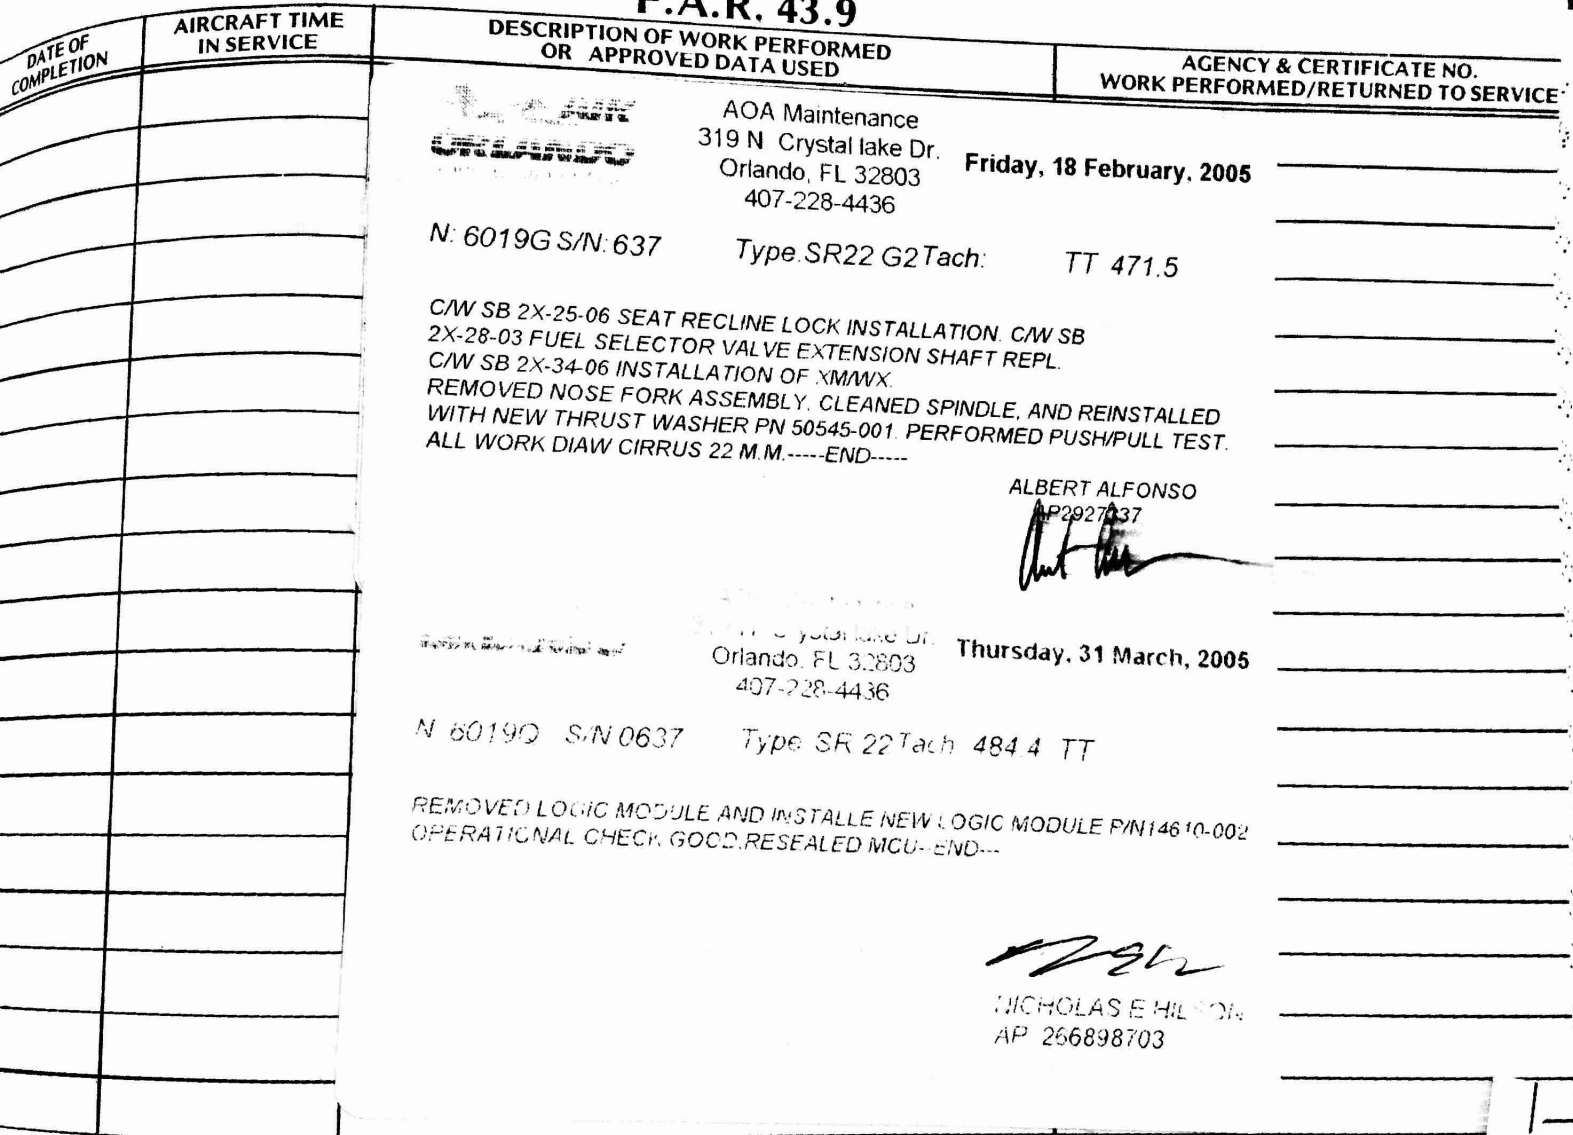 F.A.R. 43.9
DATE OF
COMPLETION
AIRCRAFT TIME
IN SERVICE
DESCRIPTION OF WORK PERFORMED
OR APPROVED DATA USED
AGENCY & CERTIFICATE NO.
WORK PERFORMED/RETURNED TO SERVICE
ORLANDO
AOA Maintenance
319 N Crystal lake Dr.
Orlando, FL 32803
407-228-4436
Friday, 18 February, 2005
N: 6019G S/N: 637 Type. SR22 G2 Tach: TT 471.5
C/W SB 2X-25-06 SEAT RECLINE LOCK INSTALLATION. C/W SB
2X-28-03 FUEL SELECTOR VALVE EXTENSION SHAFT REPL.
C/W SB 2X-34-06 INSTALLATION OF XM/WX.
REMOVED NOSE FORK ASSEMBLY, CLEANED SPINDLE, AND REINSTALLED
WITH NEW THRUST WASHER PN 50545-001. PERFORMED PUSH/PULL TEST.
ALL WORK DIAW CIRRUS 22 M.M.-----END-----
ALBERT ALFONSO
lake Dr.
Orlando, FL 32803
407-228-4436
Thursday, 31 March, 2005
N S/N 0637 Type SR 22 Tach 484.4 TT
REMOVED LOGIC MODULE AND INSTALLE NEW LOGIC MODULE P/N14610-002
OPERATIONAL CHECK GOOD.RESEALED MCU--END---
NICHOLAS E
AP 266898703